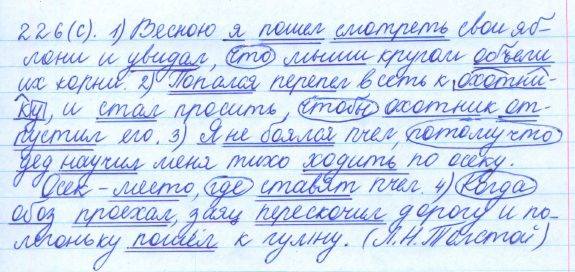 226(с). 1) Весною я пошел смотреть свои яб-
лони и увидал, что мыши кругом объели
их корни. 2) Попался перепел в сеть к охотни-
ку, и стал просить, чтобы охотник от-
пустил его. 3) Я не боялся пчел, потому что
дед научил меня тихо ходить по осеку.
Осек - место, где ставят пчел. 4) Когда
обоз проехал, заяц перескочил дорогу и по-
легоньку пошёл к гумну. (Л.Н.Толстой)